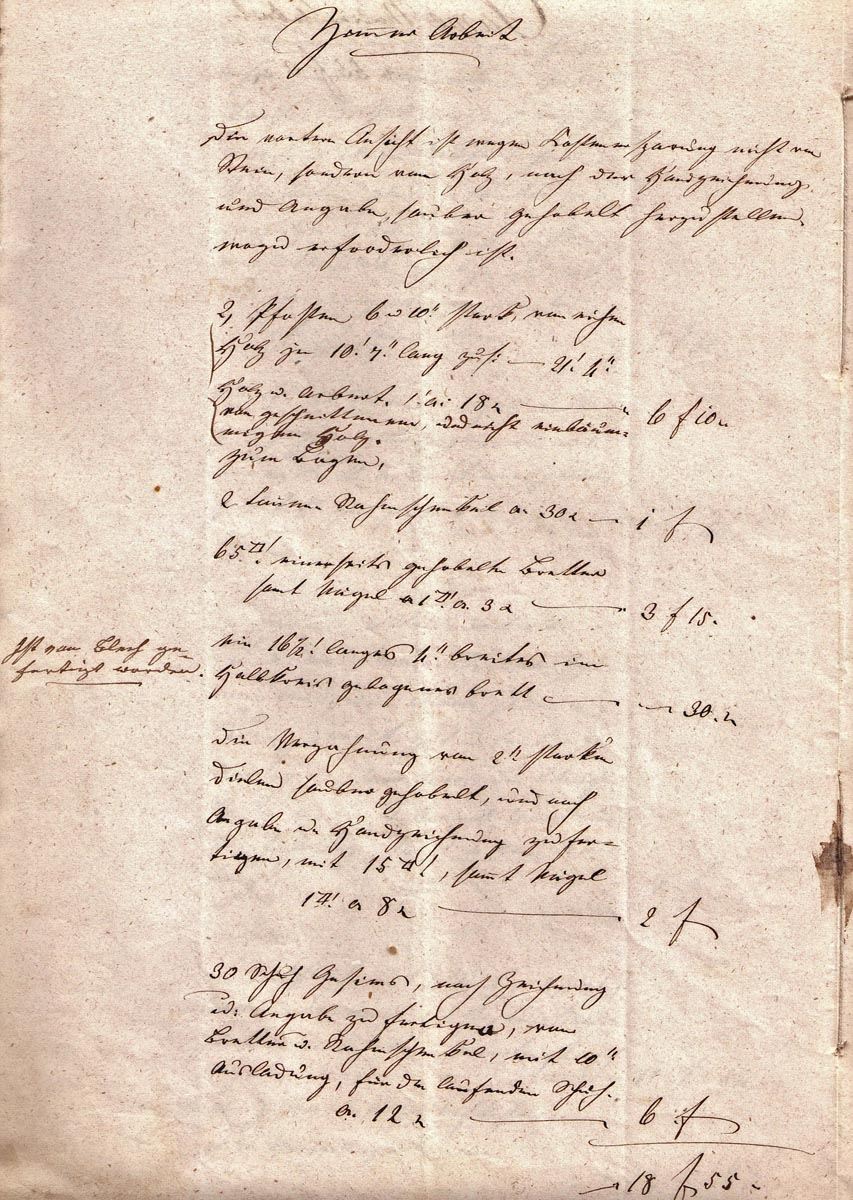 Zimmer Arbeit
Die vordere Ansicht ist wegen Kostenersparung nicht von
Stein, sondern von Holz, nach der Handzeichnung
und Angabe, sauber gehobelt herzustellen
wozu erforderlich ist.
2 Pfosten 6 u 10" stark, von eichen
Holz zu 10' 7" lang zus: — 21' 4"
Holz u. Arbeit. 1' a: 18 x — 6 f 10 x
von geschnittenem, und nicht einbäum=
migen Holz.
zum Bogen,
2 Rahmschenkel a 30 x — 1 f
65 □' einerseits gehobelte Bretter
samt Nägel a 1 □' a 3 x — 3 f 15.
Ist von Blech ge-
fertigt worden.
ein 16½' langes 4" breites im
Halbkreis gebogenes Brett — 30 x
die Verzahnung von 2" starken
Dielen sauber gehobelt, und nach
Angabe u. Handzeichnung zu fer=
tigen, mit 15 □', samt Nägel
1 □' a 8 x — 2 f
30 Schuh Gesims, nach Zeichnung
u: Angabe zu fertigen, von
Bretter u. Rahmschenkel, mit 10"
Ausladung, für den laufenden Schuh.
a. 12 x — 6 f
18 f 55 x